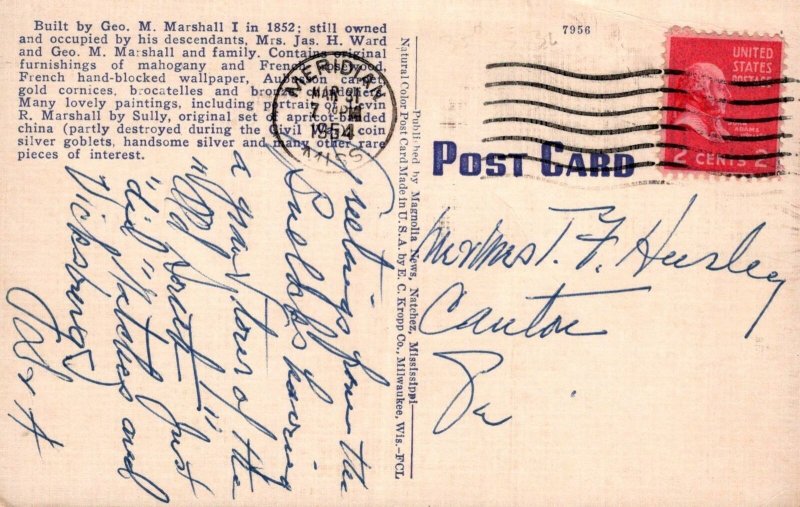 Built by Geo. M. Marshall I in 1852; still owned
and occupied by his descendants, Mrs. Jas. H. Ward
and Geo. M. Marshall and family. Contains original
furnishings of mahogany and French rosewood,
French hand-blocked wallpaper, Aubusson carpet,
gold cornices, brocatelles and bronze chandeliers.
Many lovely paintings, including portrait of Levin
R. Marshall by Sully, original set of apricot-banded
china (partly destroyed during the Civil War), coin
silver goblets, handsome silver and many other rare
pieces of interest.
MERIDIAN
MAR 3
PM
1954
MISS.
Greetings from the
having
a grand tour of the
"Old South"! Just
"did" Natchez and
Vicksburg
Published by Magnolia News, Natchez, Mississippi
Natural Color Post Card Made in U.S.A. by E. C. Kropp Co., Milwaukee, Wis.-FCL
7956
UNITED
STATES
POSTAGE
JOHN
ADAMS
2 CENTS 2
POST CARD
Mr & Mrs T. F. Hurley
Canton
Pa